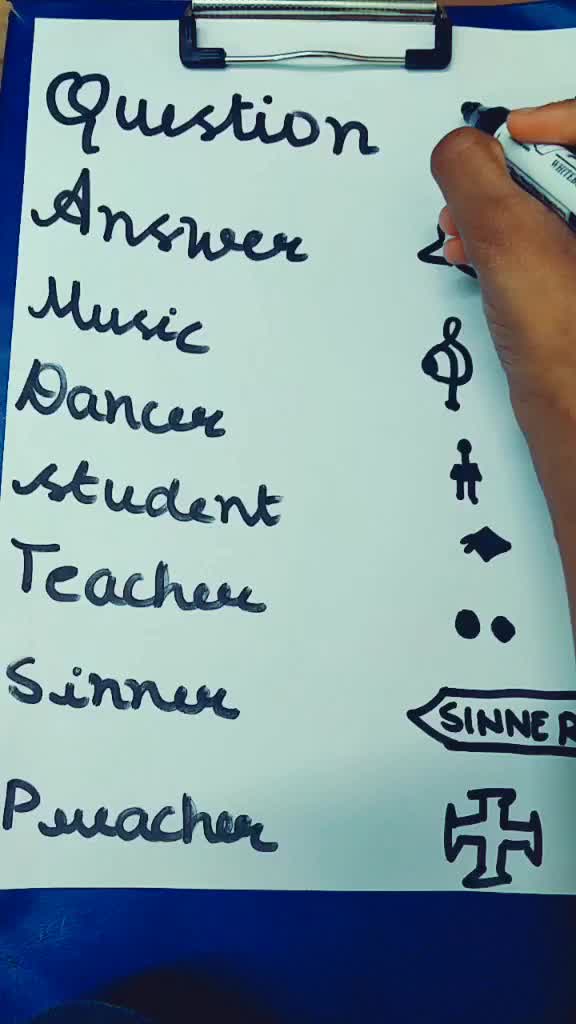 Question
Answer
Music
Dancer
student
Teacher
Sinner
SINNER
Preacher